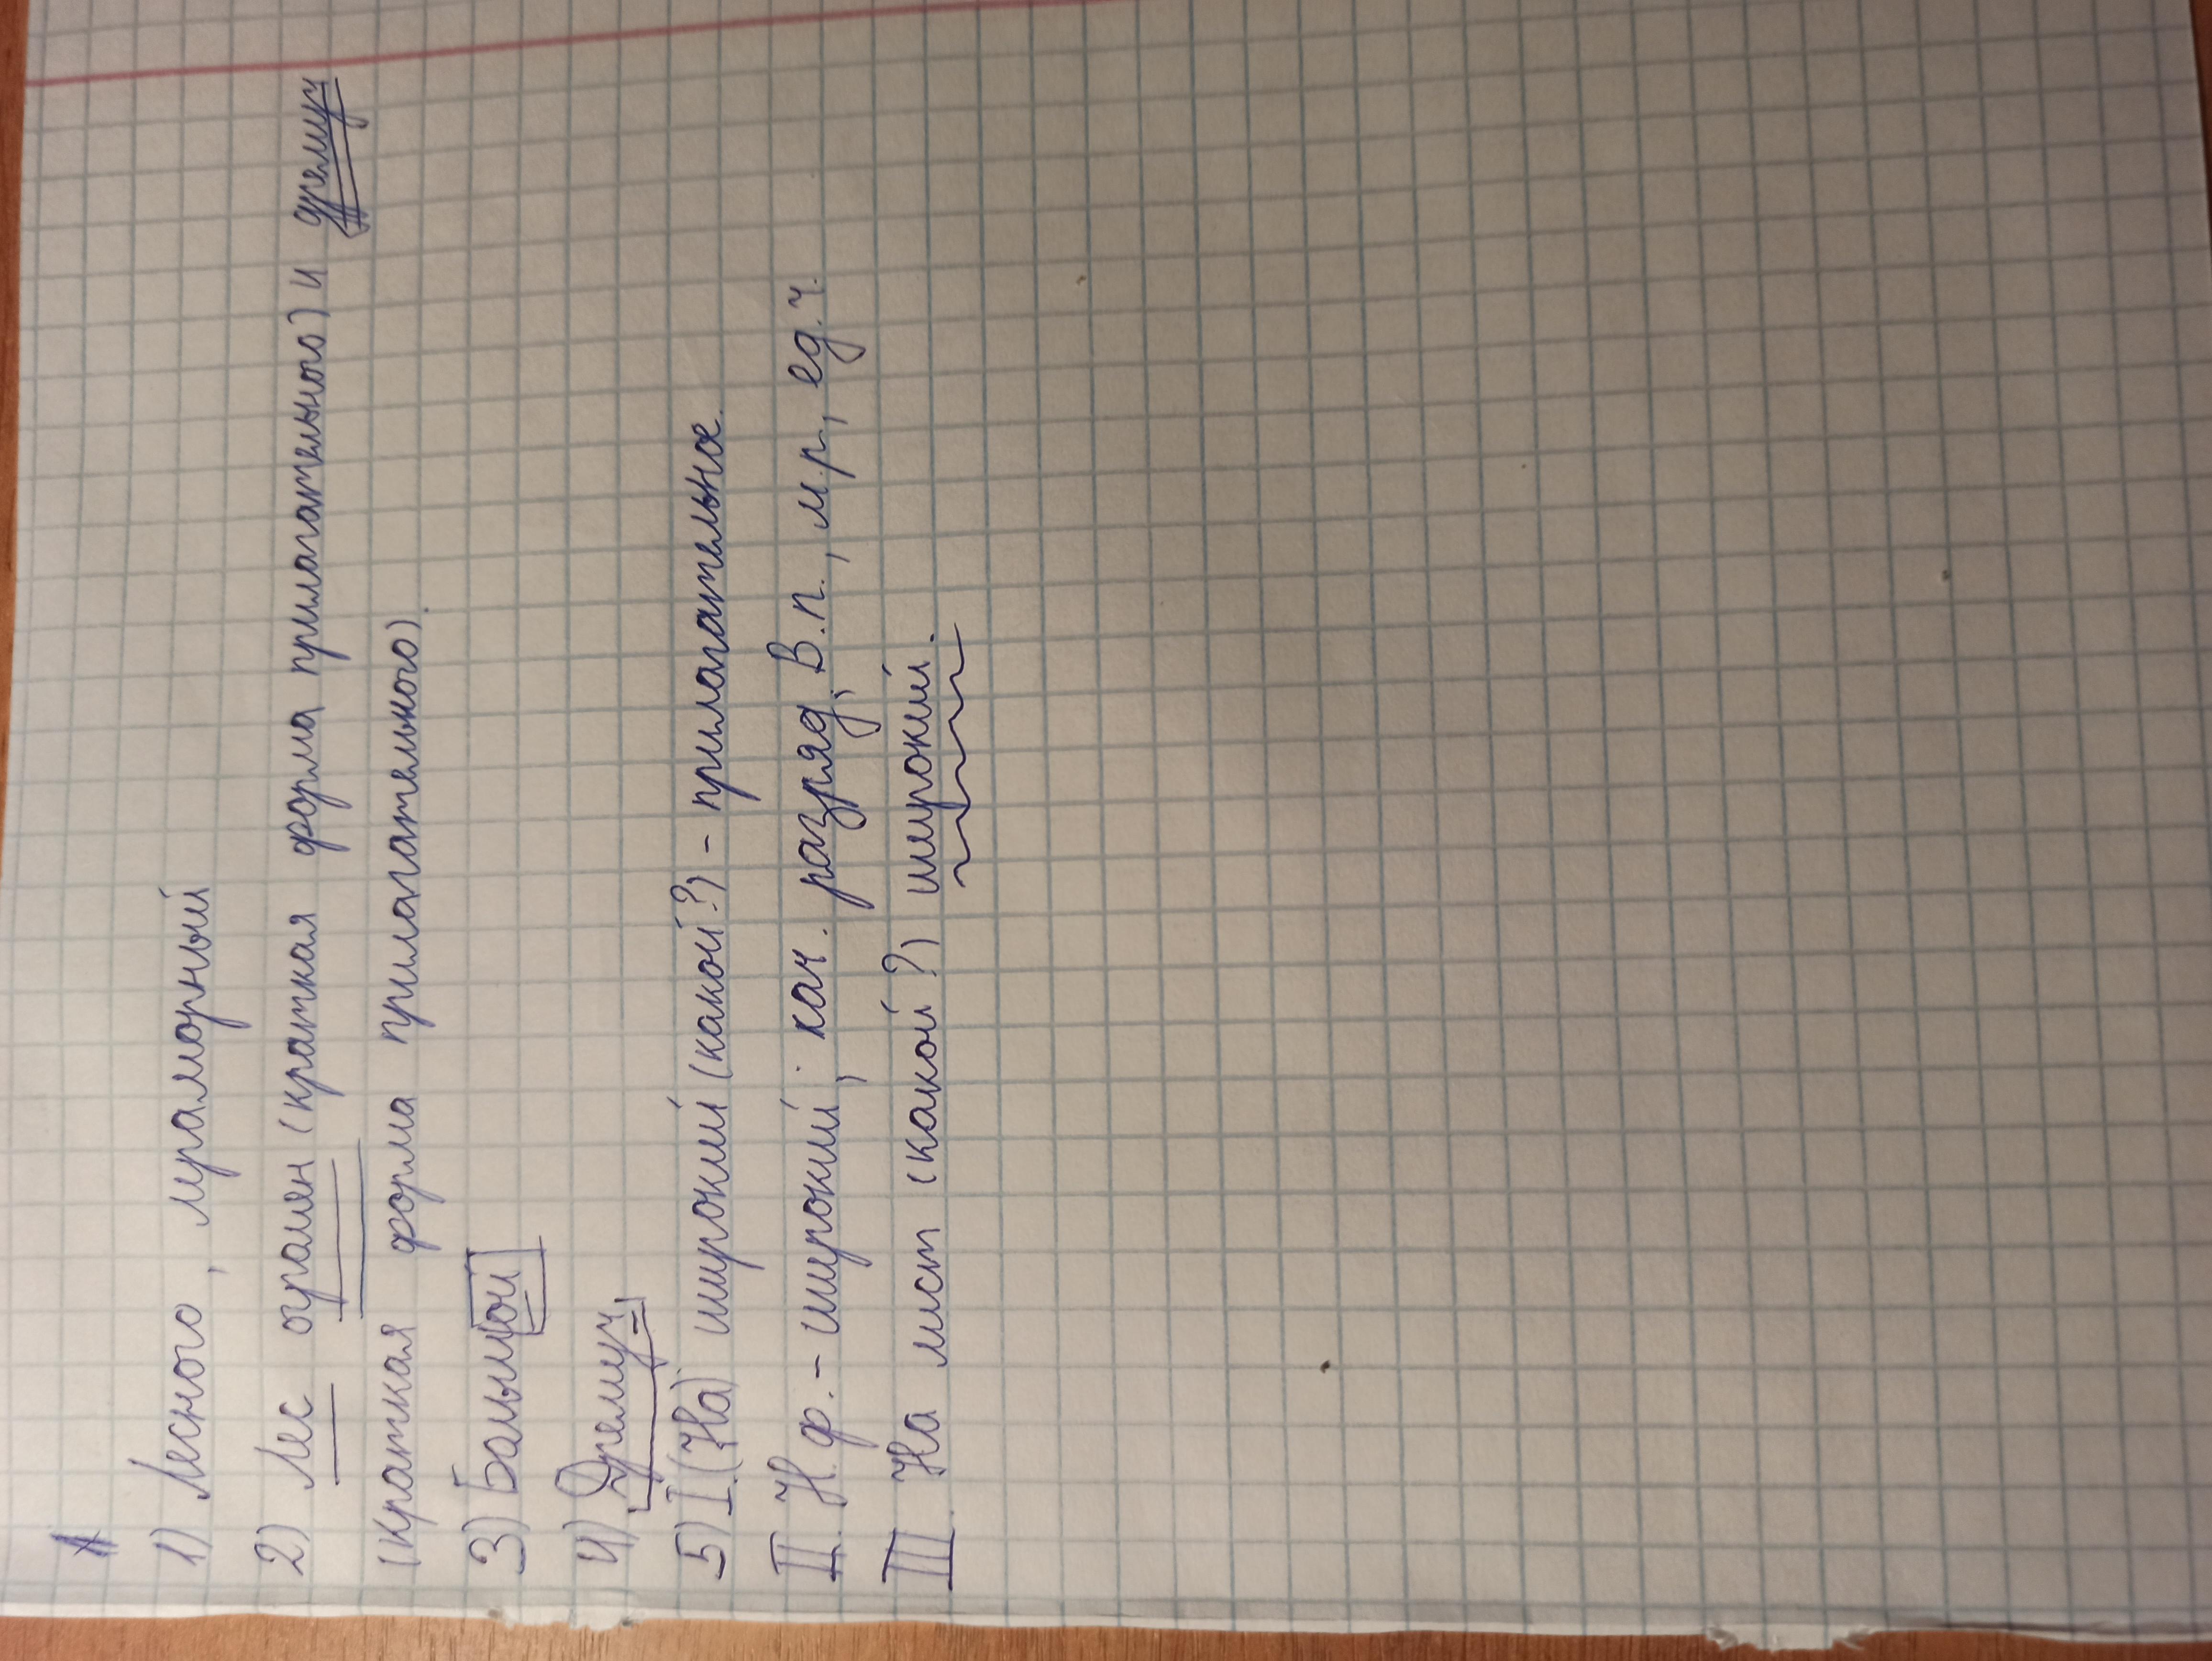 1) Лесного, мраморный
2) Лес огромен (краткая форма прилагательного) и дремуч
(краткая форма прилагательного).
3) Большой
4) Дремуч,
5) I. (На) широкий (какой?) - прилагательное.
II. Н.ф. - широкий; кач. разряд, В.п., м.р., ед.ч.
III. На лист (какой?) широкий.